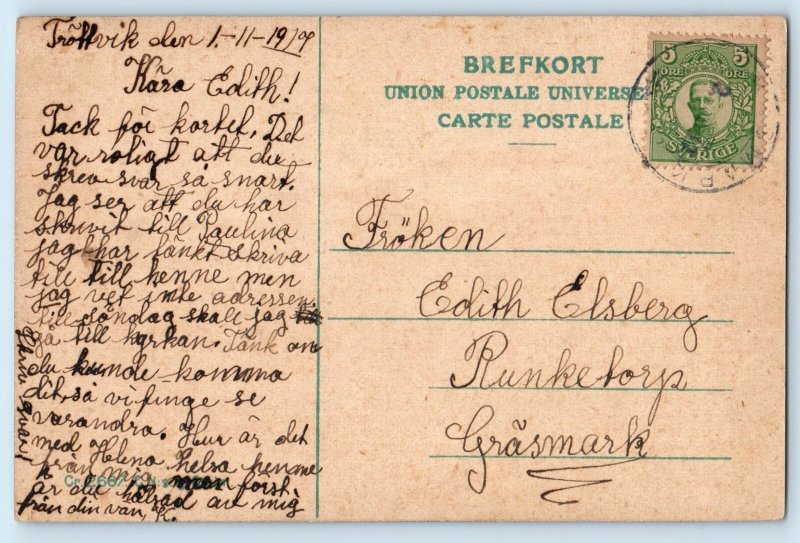 Tröttvik den 1-11-19
Kära Edith!
Tack för kortet, Det
var roligt att du
skrev svar så snart.
Jag ser att du har
skrivit till Paulina
jag har tänkt skriva
till till henne men
jag vet inte adressen.
till söndag skall jag
gå till kyrkan. Tänk om
du kunde komma
dit, så vi finge se
varandra. Hur är det
med Helena helsa henne
från mig men först
är du hälsad av mig
från din vän, K.
BREFKORT
UNION POSTALE UNIVERSE
CARTE POSTALE
5 5
ÖRE ÖRE
SVERIGE
Fröken
Edith Elsberg
Runketorp
Gräsmark